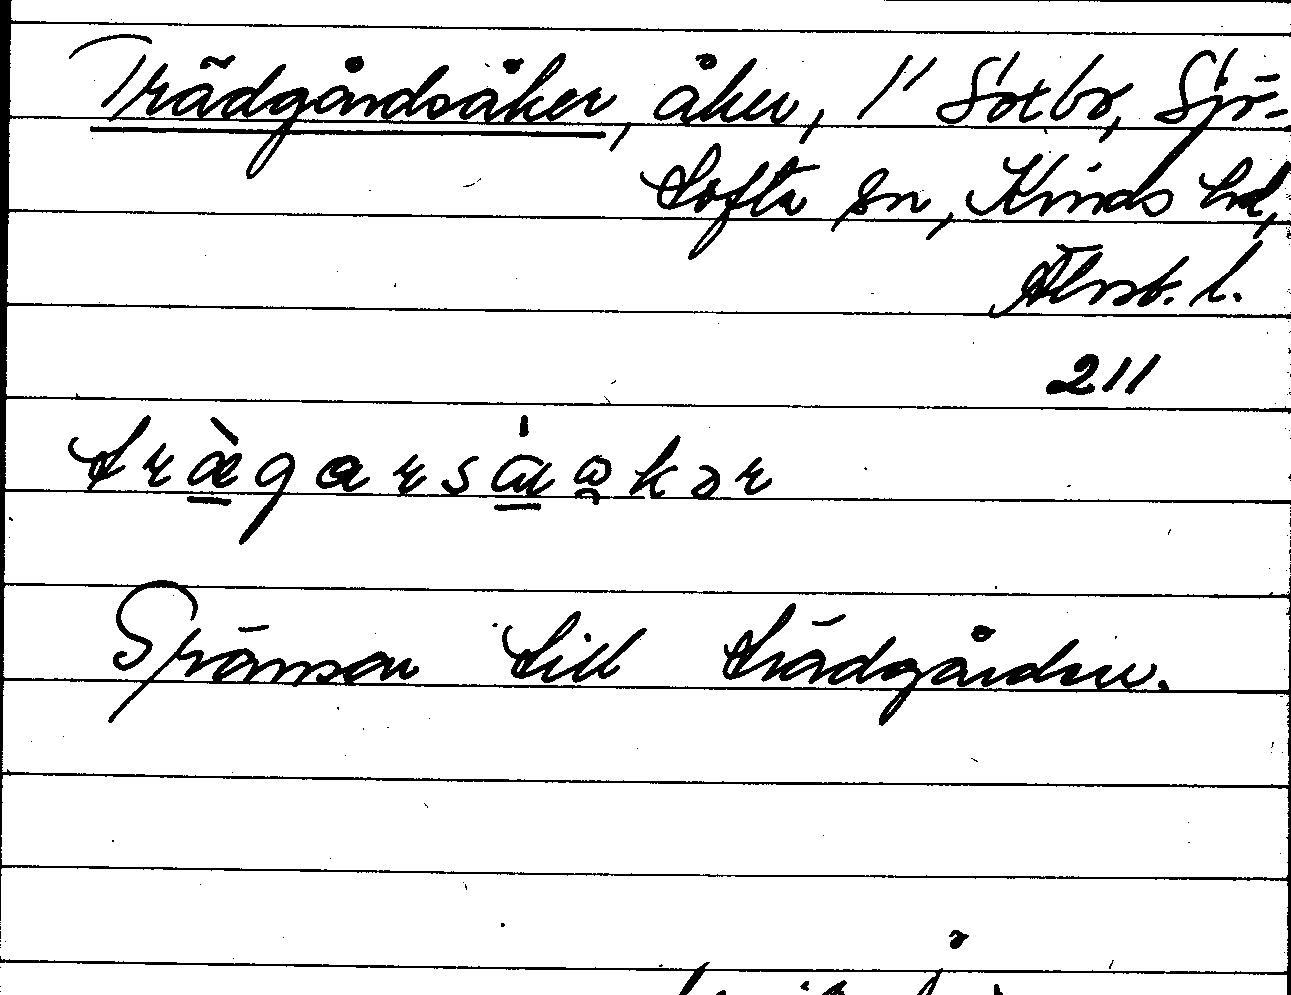 Trädgårdsåker, åker, 1' Sötbo, Sjö-
tofta sn, Kinds hd,
Älvsb. l.
211
Gränsar till trädgården.